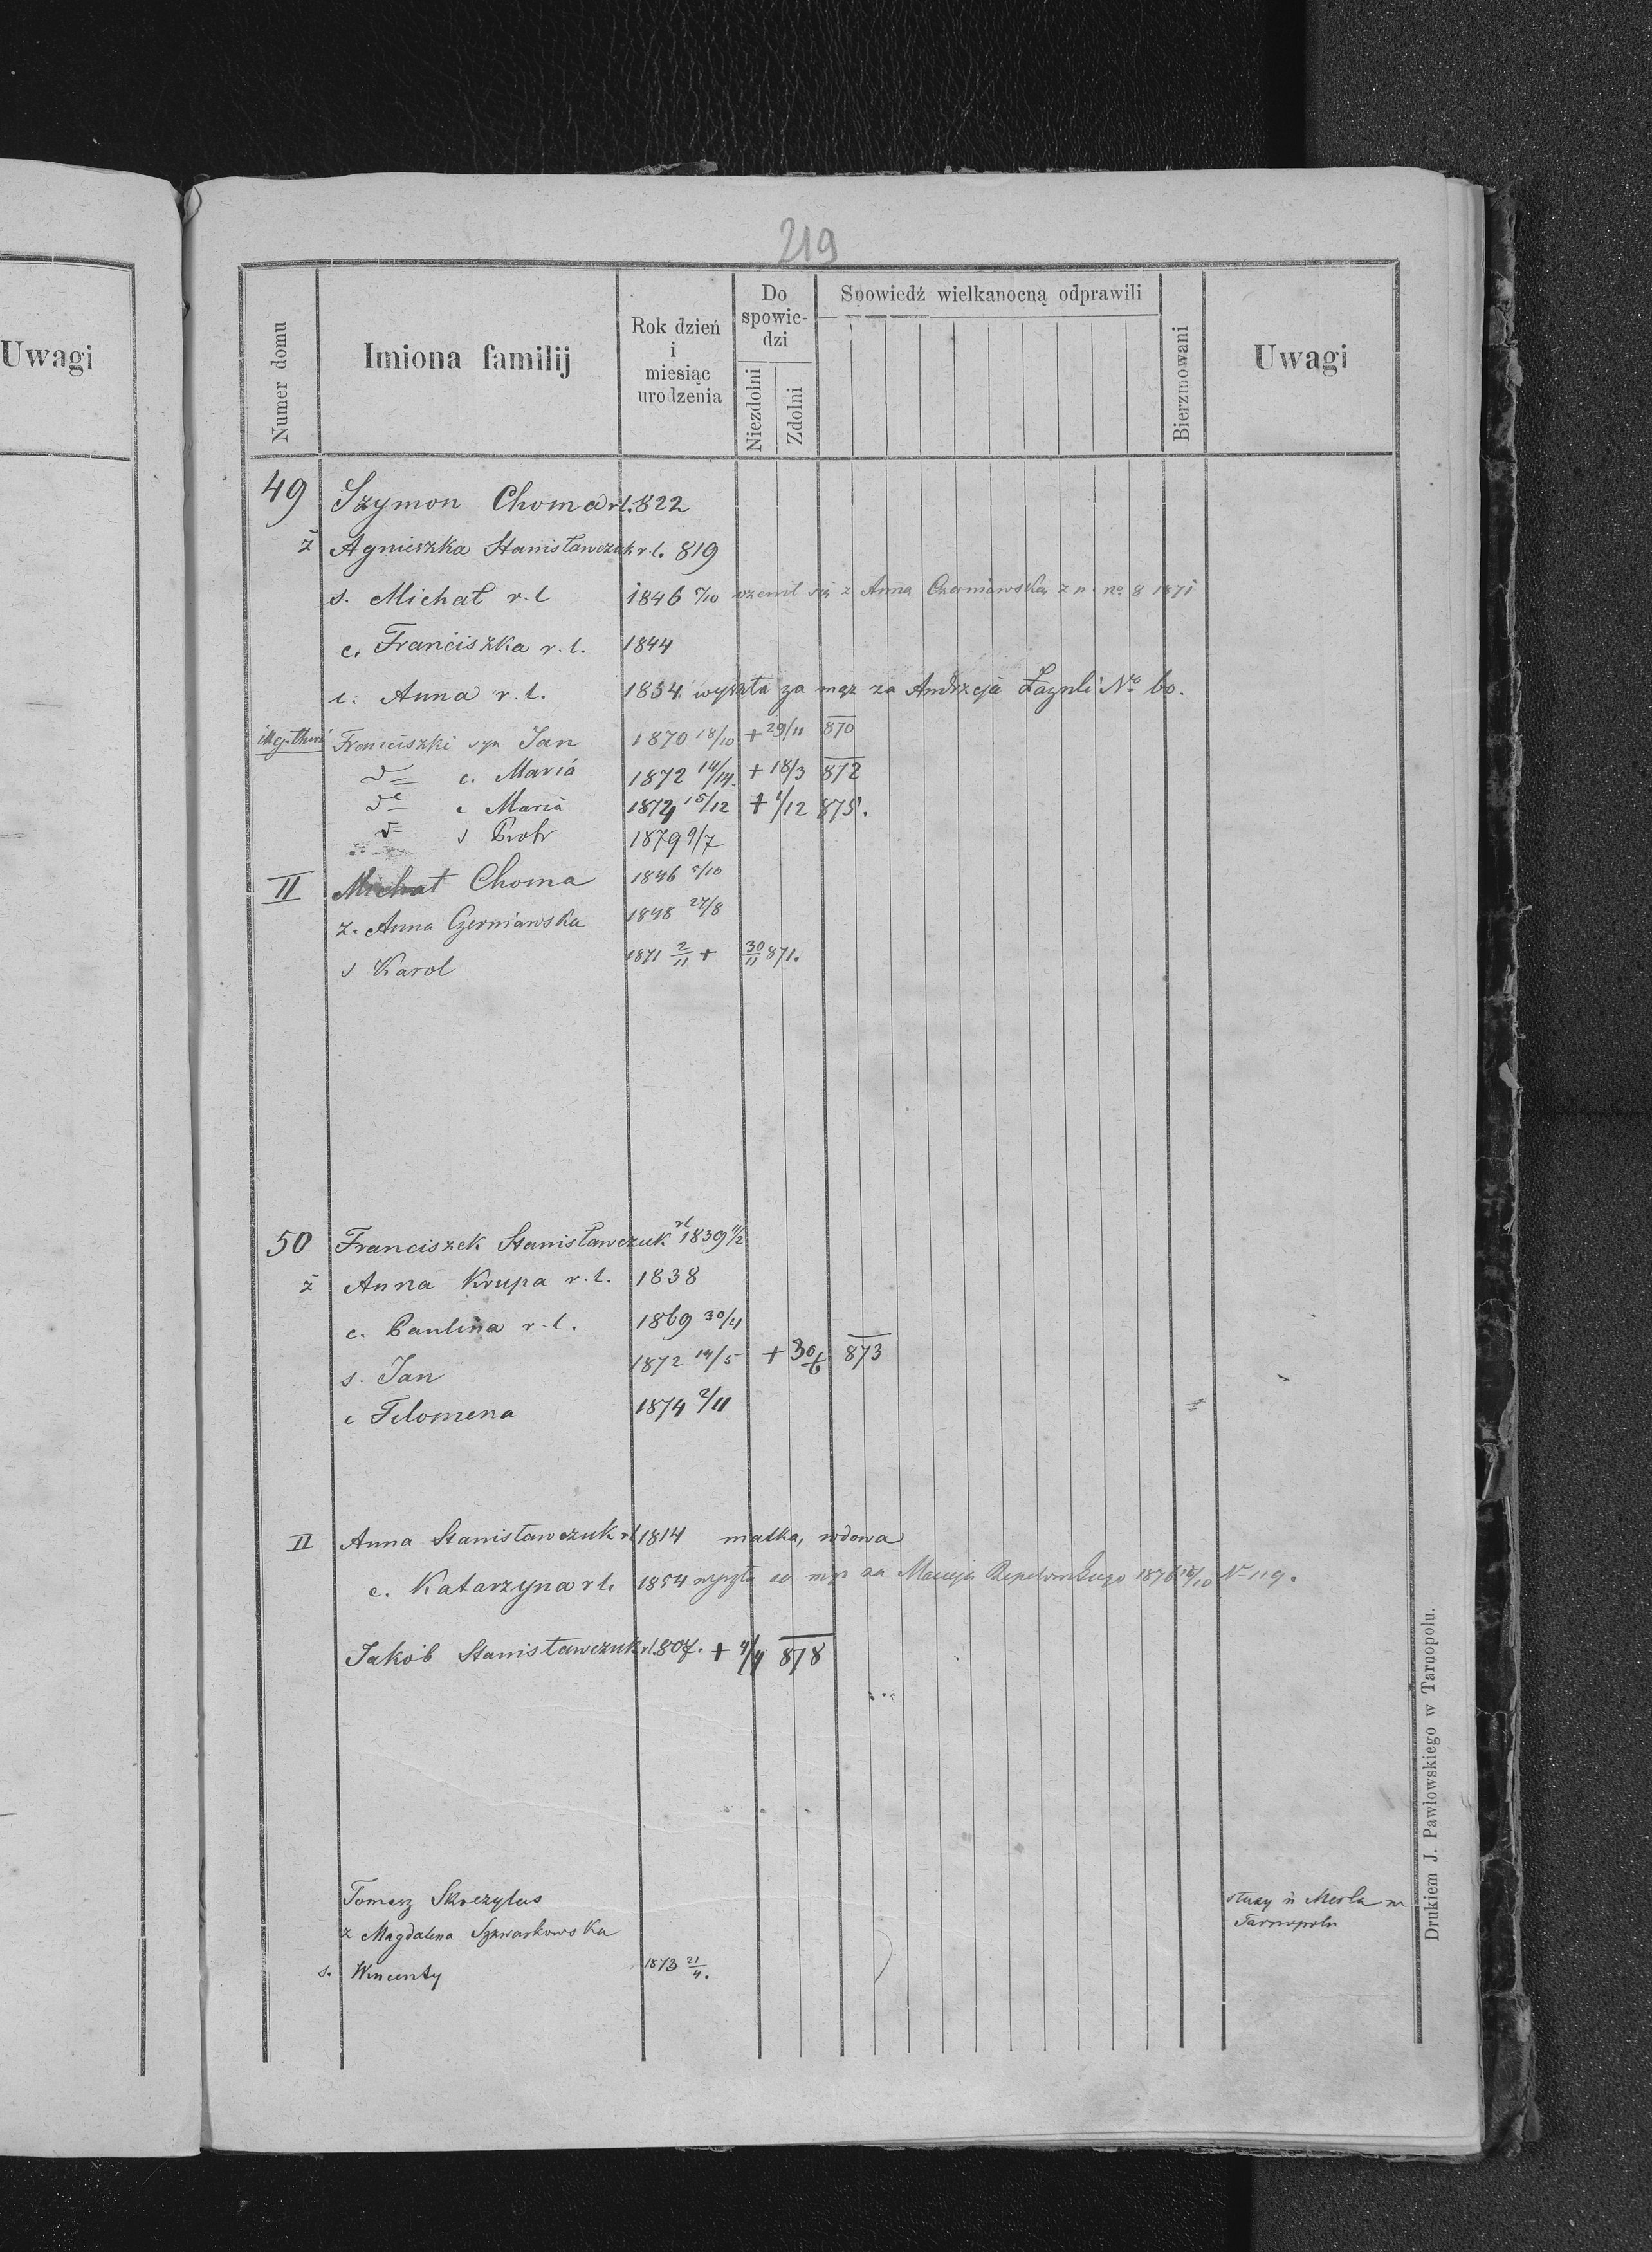 219
Uwagi
Numer domu
Imiona familij
Rok dzień i miesiąc urodzenia
Do spowiedzi
Niezdolni
Zdolni
Spowiedź wielkanocną odprawili
Bierzmowani
Uwagi
49 Szymon Choma r.l. 822
ż Agnieszka Stanisławczuk r.l. 819
s. Michał r.l 1846 5/10 ożenił się z Anna Czerniawską z n. no 8 1871
c. Franciszka r.l. 1844
c. Anna r.l. 1854 wyszła za mąż za Andrzeja No 60.
Franciszki syn Jan 1870 18/10 + 29/11 870
c. Maria 1872 + 18/3 872
c Maria 1874 15/12 + 1/12 875.
s Piotr 1879 9/7
II Michał Choma 1846 5/10
ż. Anna Czerniawska 1848 27/8
s Karol 1871 2/11 + 30/11 871.
50 Franciszek Stanisławczuk rl 1839 11/2
ż Anna Krupa r.l. 1838
c. Paulina r.l. 1869 30/4
s. Jan 1872 14/5 + 30/6 873
c Filomena 1874 2/11
II Anna Stanisławczuk rl 1814 matka, wdowa
c. Katarzyna rl. 1854 wyszła za mąż za Macieja No 119.
Jakób Stanisławczuk rl. 807. + 4/4 878
Tomasz Skoczylas służy u w
ż Magdalena Szwarkowska Tarnopolu
s. Wincenty 1873 21/4.
Drukiem J. Pawłowskiego w Tarnopolu.